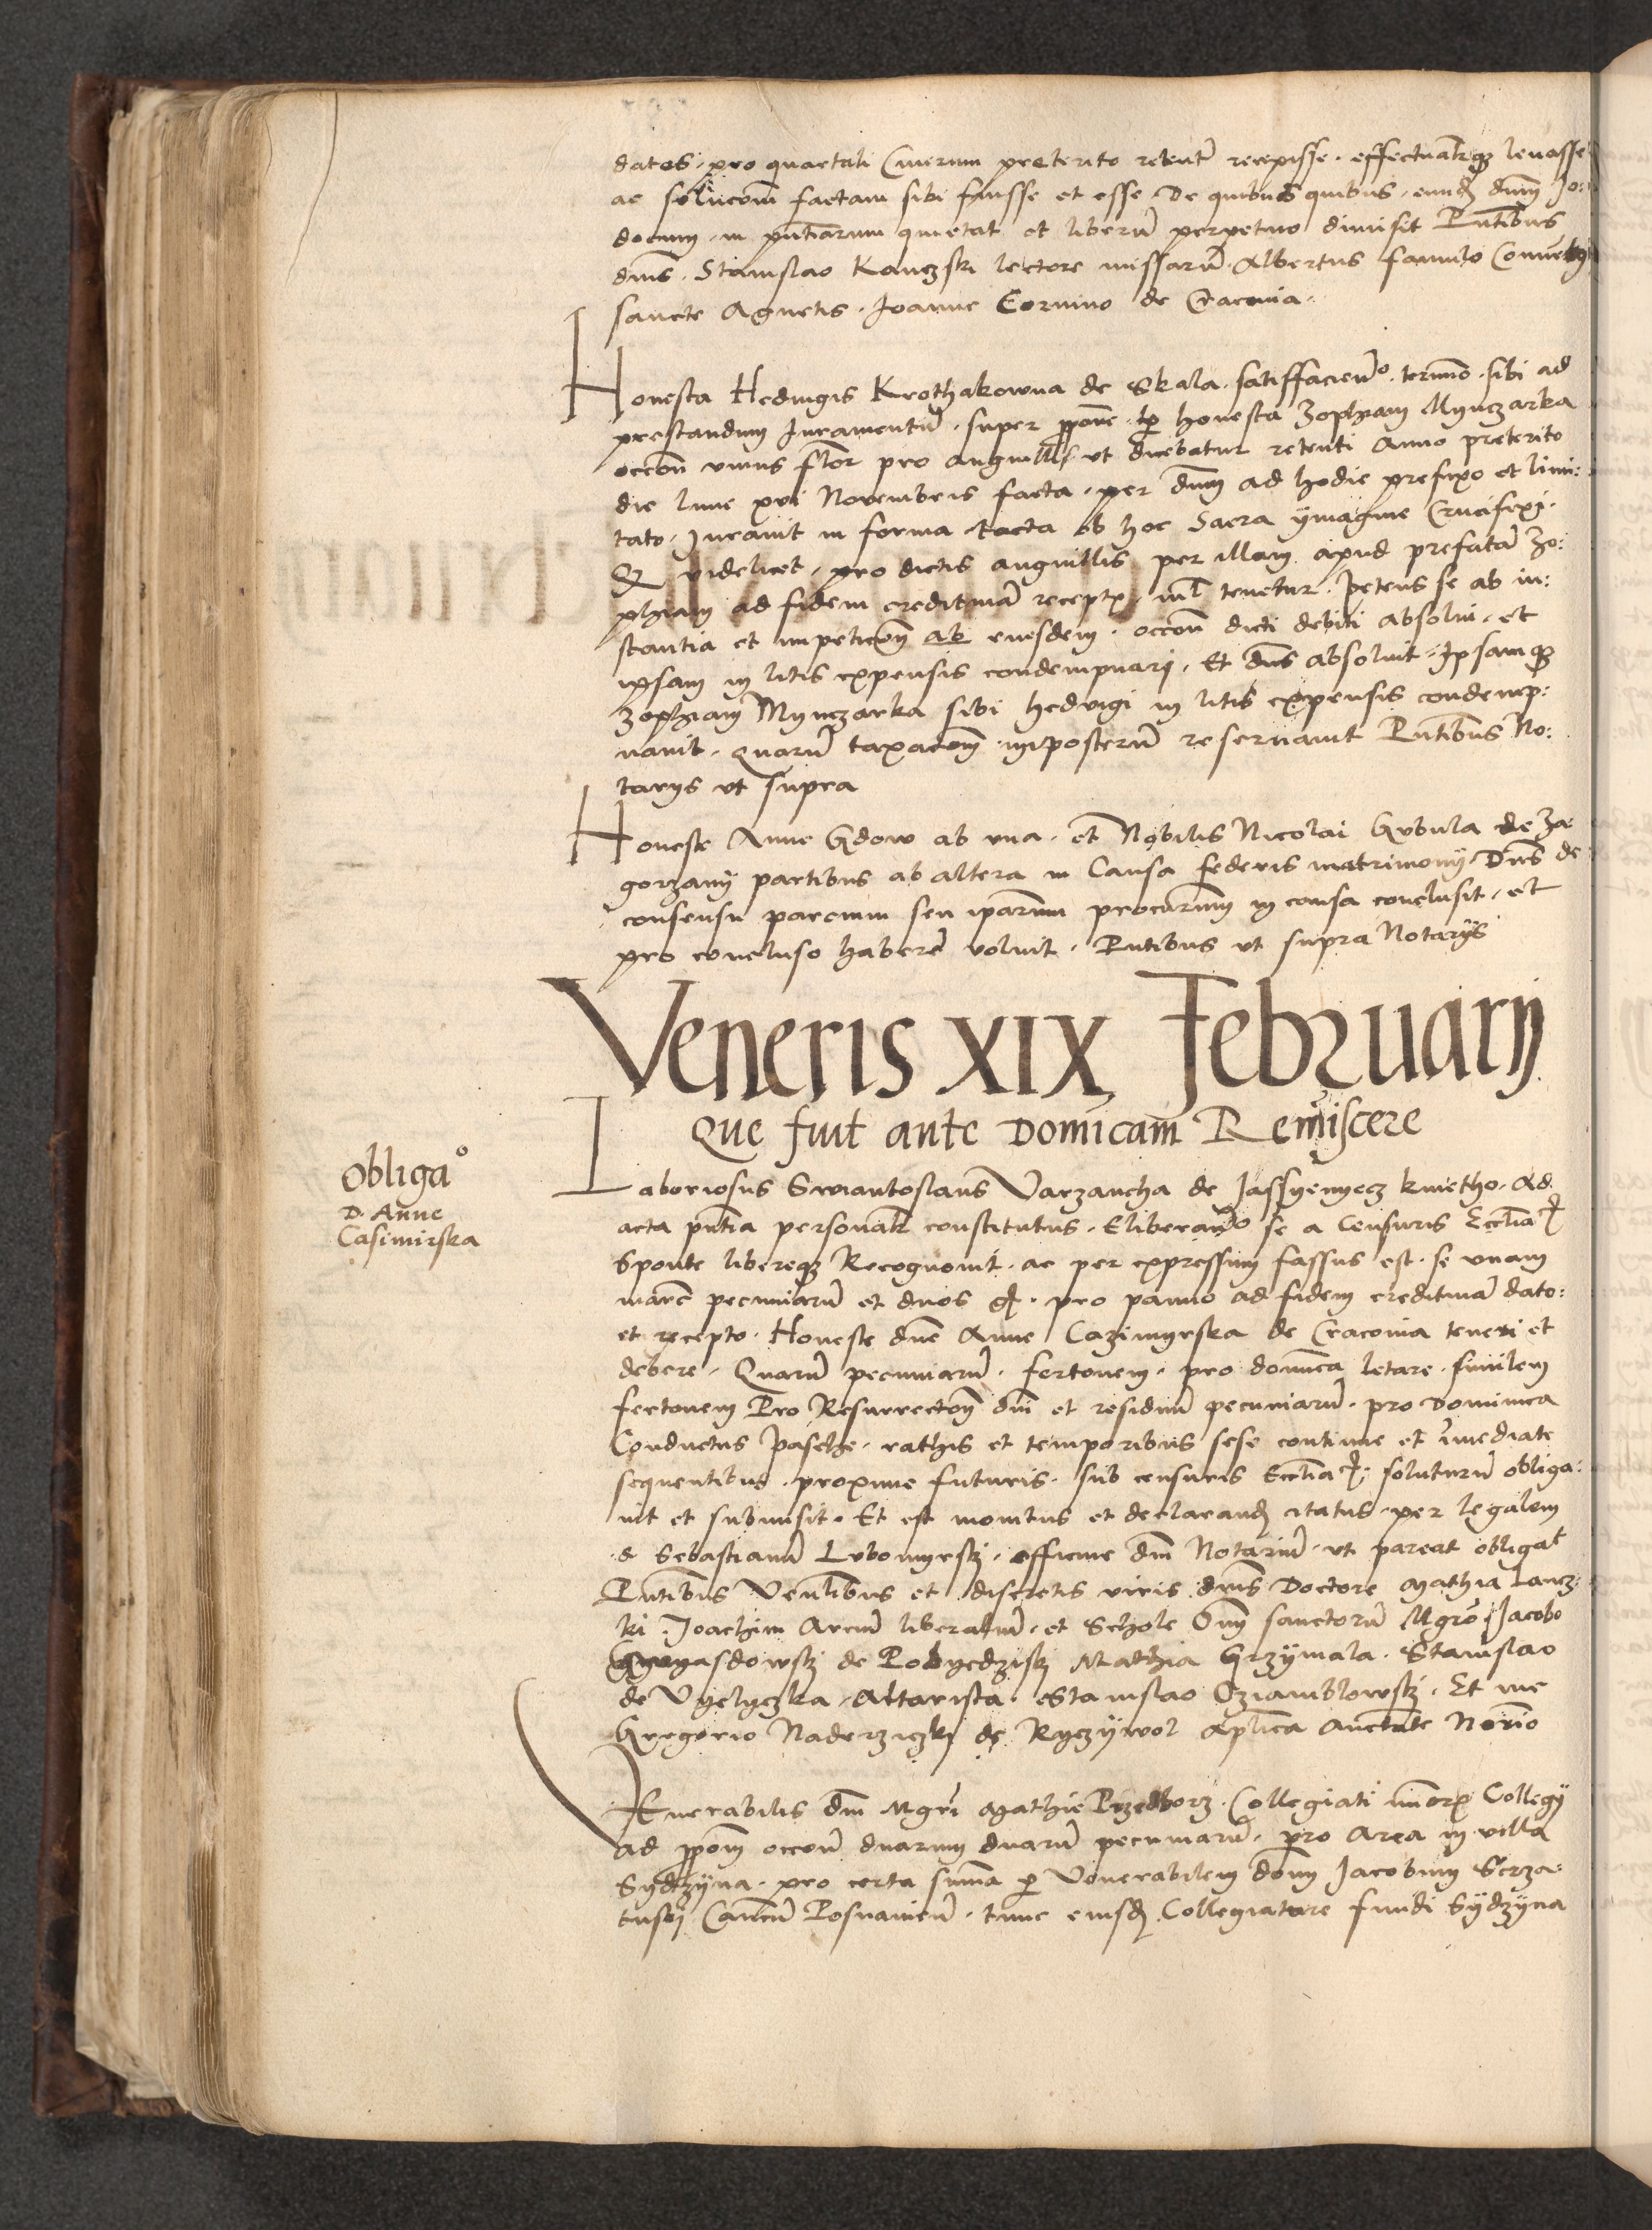 datos, pro quartali Cinerum preterito retent recepisse, effectualrqz levasse
ac solucom factam sibi fuisse et esse, De quibus quibus, eund dnm Jo:
docum, in pntiarum quietat et liberu perpetuo dimisit Pntibus
dnis. Stanislao Kanczski lectore missaru. Albertus famulo
sancte Agnetis. Joanne Corvino de Cracovia.
Honesta Hedvigis Krothakowna de Skala. satisfaciendo termino sibi ad
prestandum Juramentu, super ppone per honesta Zophiam Mynczarka
occon unius flor pro anguillis ut dicebatur retenti Anno preterito
die lune xvi Novembris facta, per dnm ad hodie prefixo et limi:
tato, Juravit in forma tacta ob hoc Sacra ymagine Crucifixi.
Q videlicet, pro dictis anguillis per illam apud prefata Zo:
phiam ad fidem creditiva recept, nil tenetur. Petens se ab in:
stantia et impeticom ab eiusdem, occon dicti debiti absolvi, et
ipsam in litis expensis condempnari, Et dns absolvit, Ipsamqz
Zophiam Mynczarka sibi hedvigi in litis expensis condemp:
navit, quaru taxacom inposteru reservavit Pntibus No:
tarijs ut supra
Honeste Anne Gdow ab una, et Nobilis Nicolai Grbula de Za
gorzany partibus ab altera in Causa federis matrimonij Dns de
consensu parcium seu iparum procurum in causa conclusit, et
pro concluso habere voluit, Pntibus ut supra Notarijs
Veneris XIX Februarij
Que fuit ante Domicam Remiscere
Obliga°
D. Anne
Casimirska
Laboriosus Swiantoslaus Varzancha de Jassyenyecz kmetho, Ad
acta pntia personalr constitutus, Eliberando se a Censuris Ecclia
Sponte libereqz Recognovit, ac per expressum fassus est, se unam
marc pecuniaru et duos gr, pro panno ad fidem creditiva dato:
et recepto. Honeste dne Anne Cazimyrska de Cracovia teneri et
debere, Quaru pecuniaru, fertonem, pro domica letare, similem
fertonem Pro Resurrectom dni et residuu pecuniaru, pro Dominica
Conductus Pasche, rathis et temporibus sese continue et imediate
sequentibus, proxime futuris, sub censuris Ecclia; soluturu obliga:
vit et submisit. Et est monitus et declarand citatus, per legalem
d Sebastianu Lvbomyrskj, officine dni Notariu, ut pareat obligat
Pntibus Venlibus et discretis viris dnis Doctore Mathia Lancz:
ki. Joachim Arciu liberaliu, et Schole Oim sanctoru Mgro Jacobo
de Pobyedziskj Mathia Grzymala. Stanislao
de Vyelyczka, Altarista. Stanislao Oziamblowskj. Et me
Gregorio Naderziczkj de Ryczywol Aplica Auctate Norio
Venerabilis dni Mgri Mathie Przedborz. Collegiati minorz Collegij
ad ppom occon duarum duaru pecuniaru, pro Area in villa
Sydzyna, pro certa suma p Venerabilem dnm Jacobum Serza:
tuskj Canocu Posnanien, tunc eiusd Collegiature fundi Sydzyna